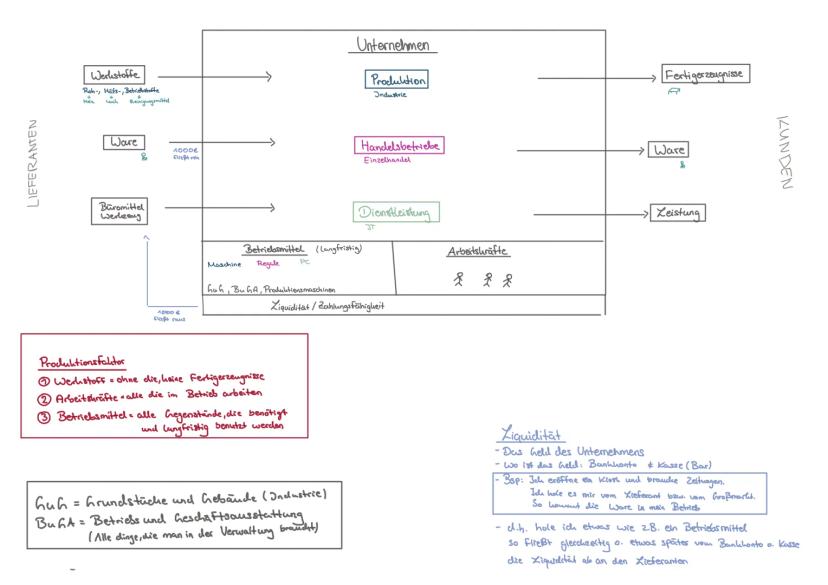 Unternehmen
Werkstoffe
Roh-, Hilfs-, Betriebsstoffe
Reinigungsmittel
Produktion
Industrie
Fertigerzeugnisse
LIEFERANTEN
KUNDEN
Ware
1000€
fließt rein
Handelsbetriebe
Einzelhandel
Ware
Büromittel
Werkzeug
Dienstleistung
IT
Leistung
Betriebsmittel (langfristig)
Maschine Regale PC
GuG, BuGA, Produktionsmaschinen
Arbeitskräfte
Liquidität / Zahlungsfähigkeit
1000€
fließt raus
Produktionsfaktor
① Werkstoff = ohne die, keine Fertigerzeugnisse
② Arbeitskräfte = alle die im Betrieb arbeiten
③ Betriebsmittel = alle Gegenstände, die benötigt
und langfristig benutzt werden
GuG = Grundstücke und Gebäude (Industrie)
BuGA = Betriebs und Geschäftsausstattung
(Alle dinge, die man in der Verwaltung braucht)
Liquidität
- Das Geld des Unternehmens
- Wo ist das Geld: Bankkonto & Kasse (Bar)
- Bsp: Ich eröffne ein Kiosk und brauche Zeitungen.
Ich hole es mir vom Lieferant bzw. vom Großmarkt.
So kommt die Ware in mein Betrieb
- d.h. hole ich etwas wie z.B. ein Betriebsmittel
so fließt gleichzeitig o. etwas später vom Bankkonto o. Kasse
die Liquidität ab an den Lieferanten